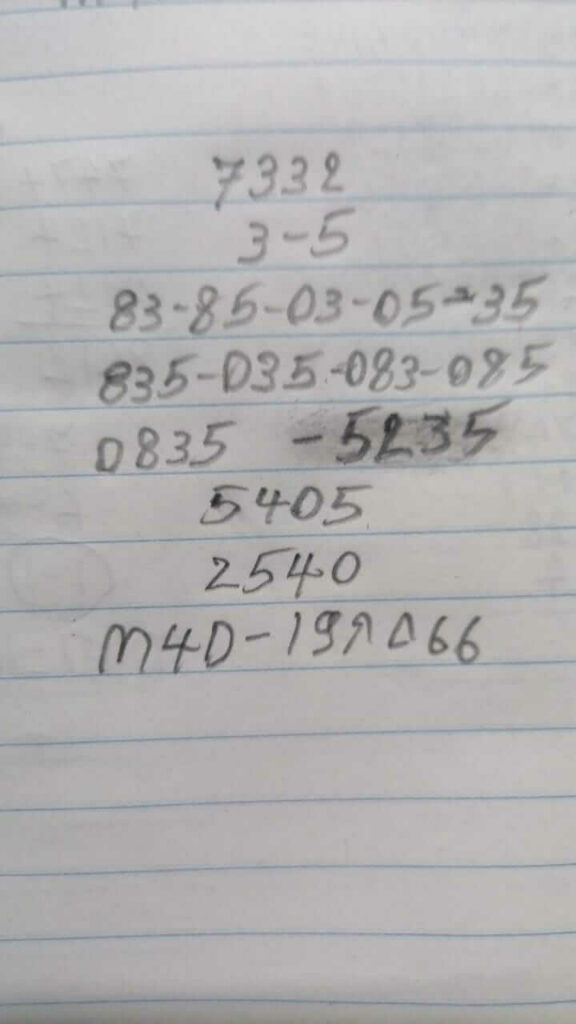 7332
3-5
83-85-03-05-35
835-035-083-085
0835 -5235
5405
2540